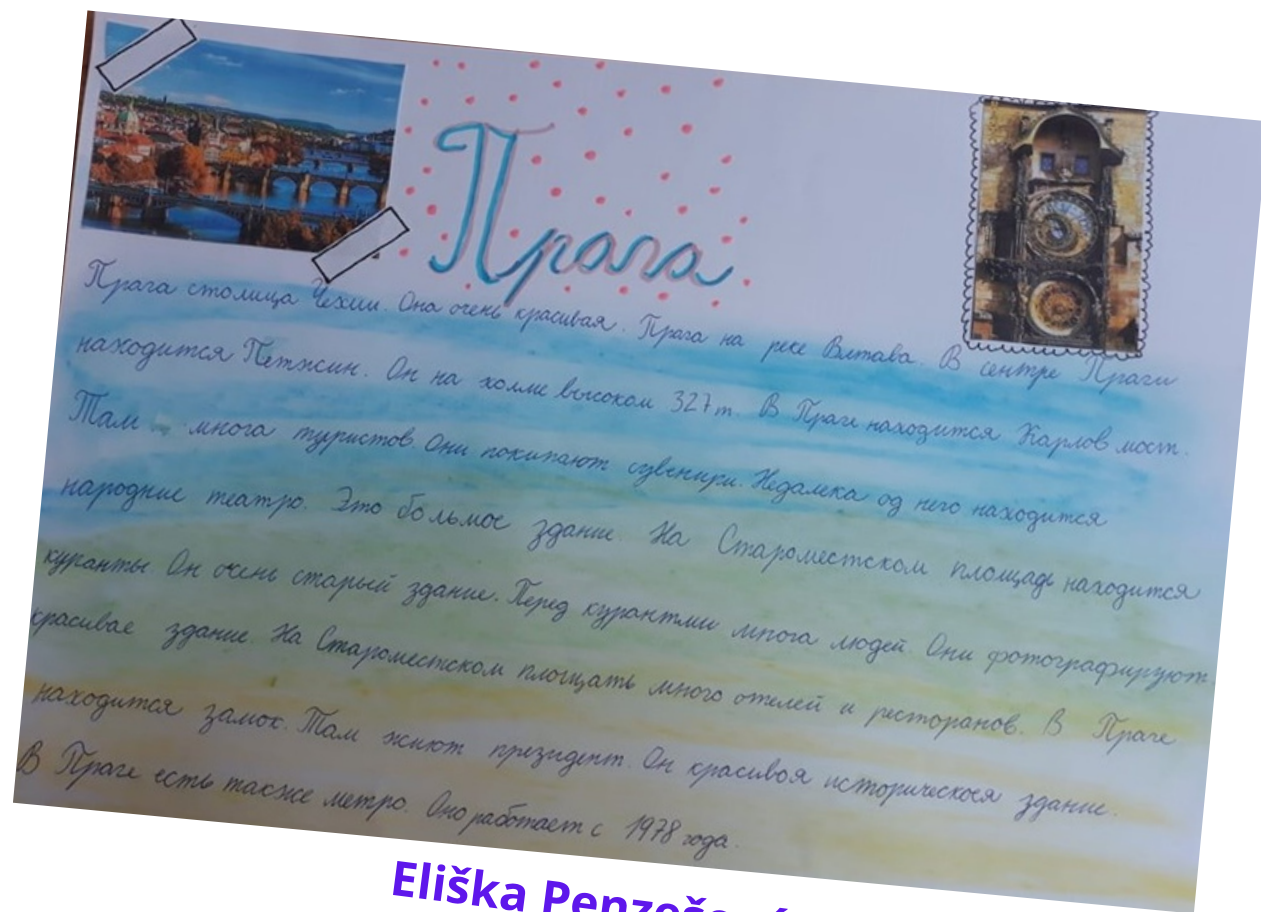 Прага
Прага столица Чехии. Она очень красивая. Прага на реке Влтава. В сентре Праги
находится Петжсин. Он на холме высоком 327 m. В Праге находится Карлов мост.
Там многа туристов. Они покупают сувенири. Недалека од него находится
народние театро. Это большое здание. На Староместском площадь находится
куранты. Он очень старый здание. Перед курантми многа людей. Они фотографируют
красивае здание. На Староместском площать много отелей и ресторанов. В Праге
находится замок. Там жиют президент. Он красивоя историческоя здание.
В Праге есть также метро. Оно работает с 1978 года.
Eliška